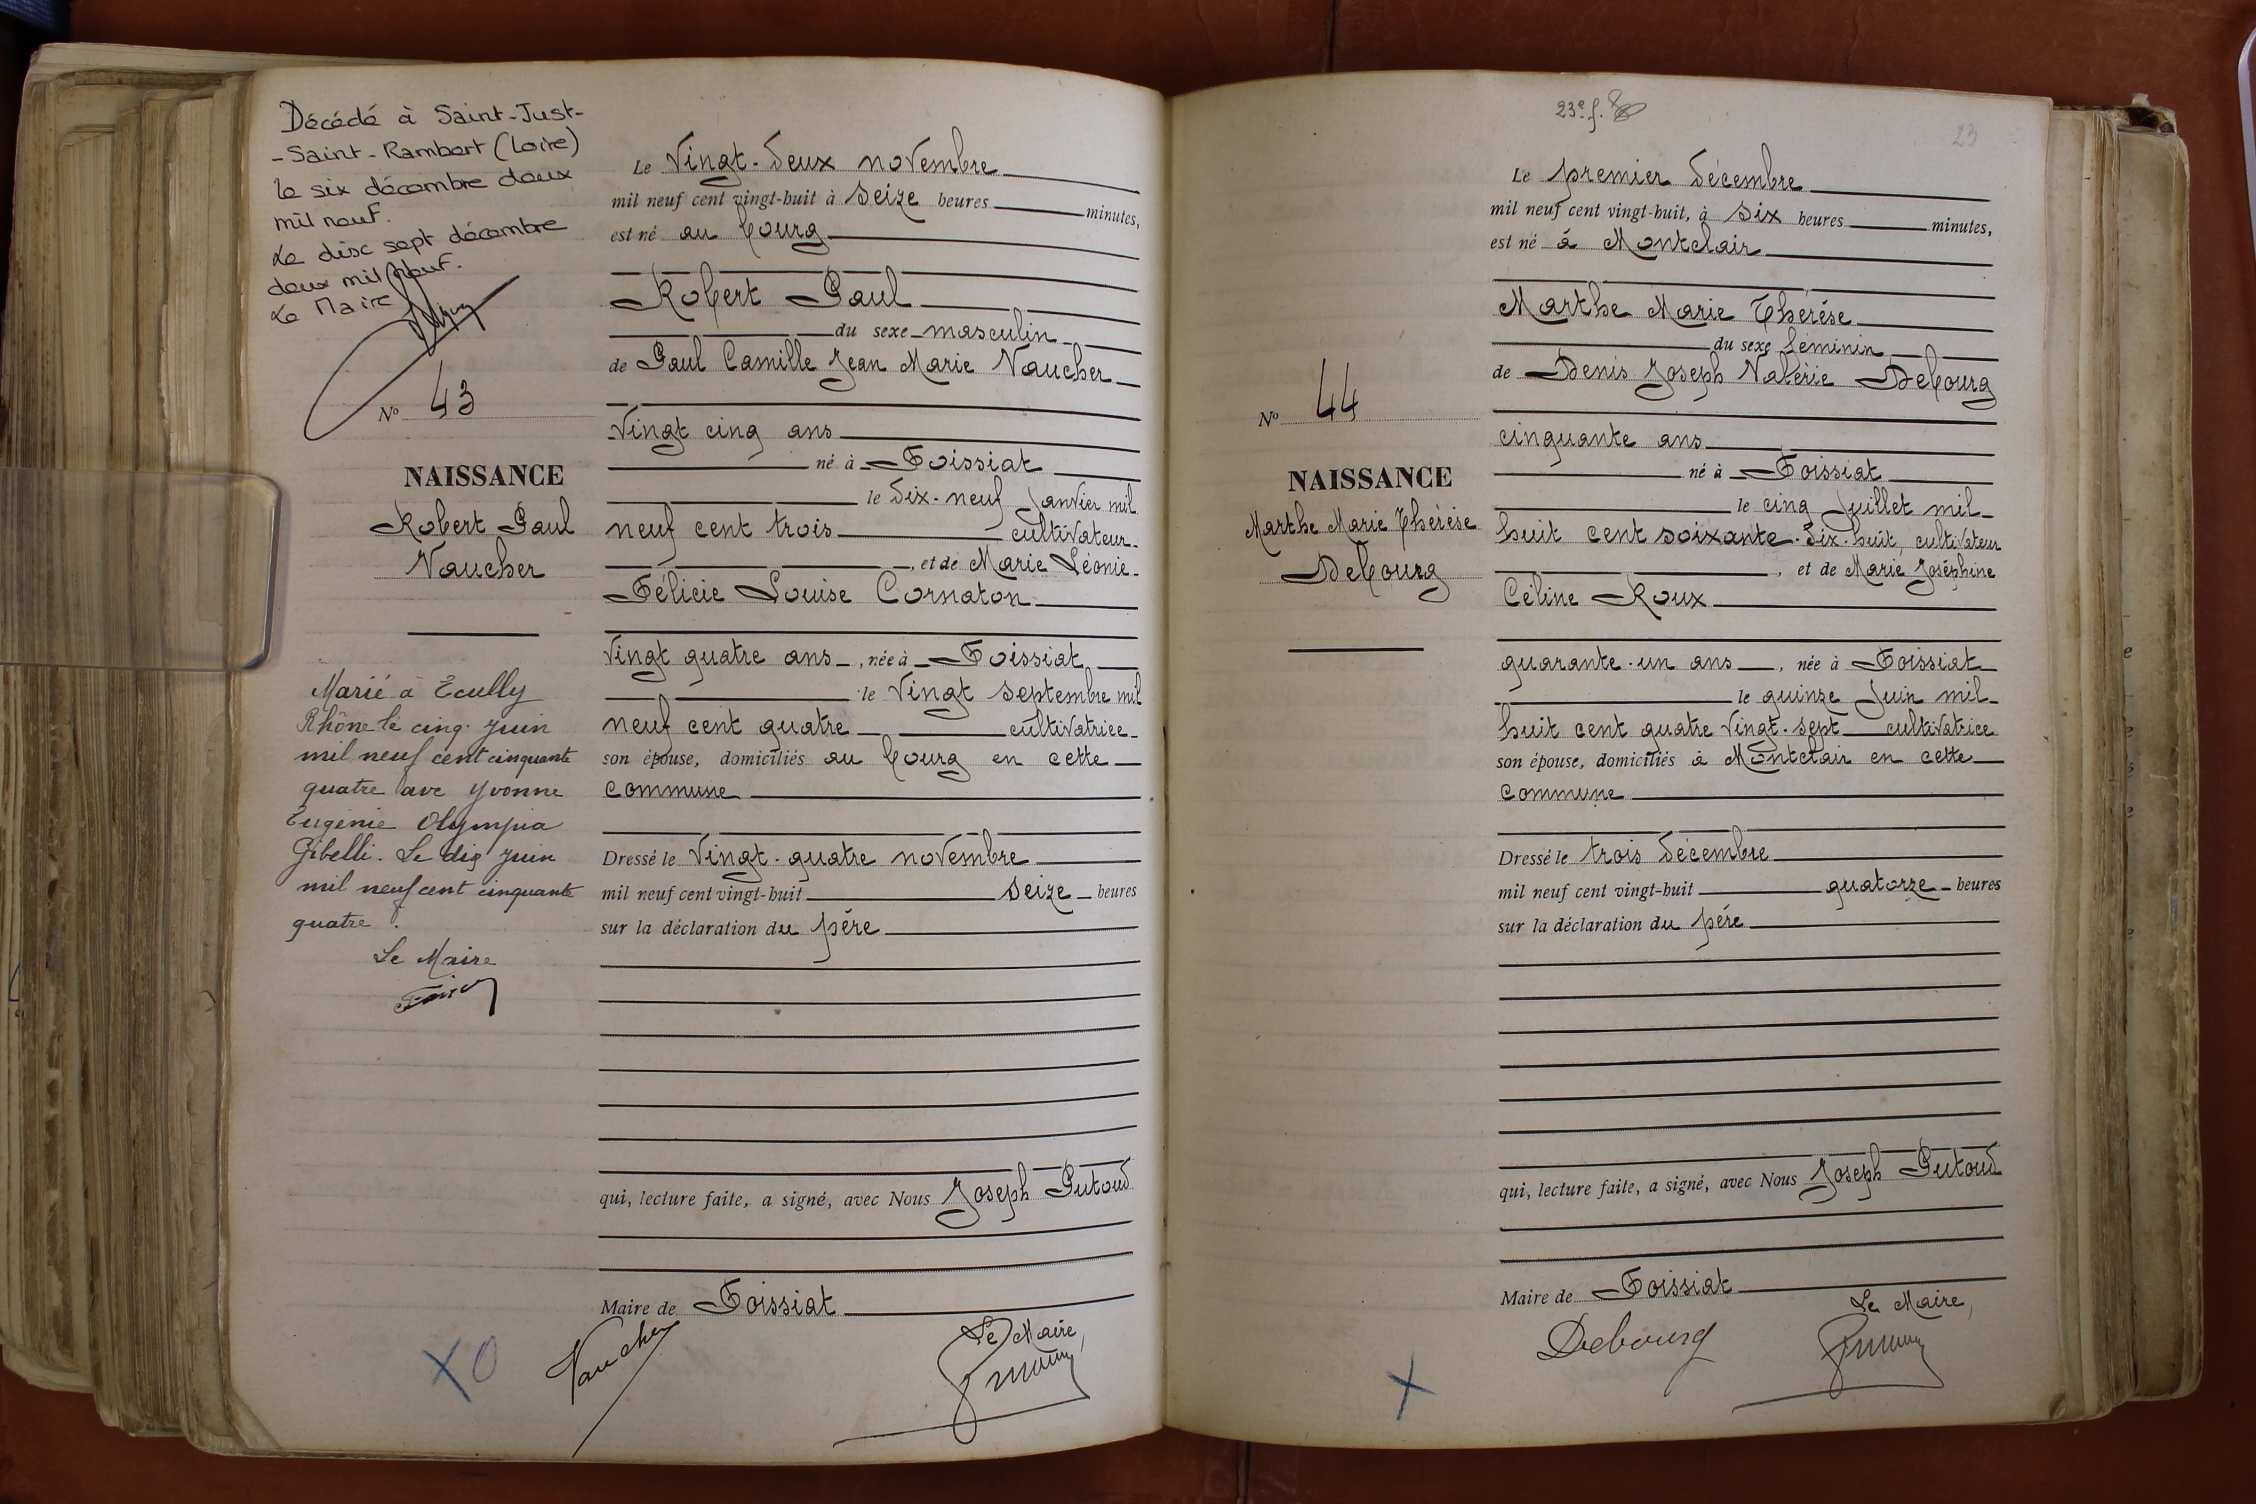 Décédé à Saint-Just-
-Saint-Rambert (Loire)
le six décembre deux
mil neuf.
Le disc sept décembre
deux mil neuf.
Le Maire
N° 43
NAISSANCE
Robert Paul
Vaucher
Marié à Ecully
Rhône le cinq juin
mil neuf cent cinquante
quatre avc Yvonne
Eugénie Olympia
Gibelli. Le dix juin
mil neuf cent cinquante
quatre.
Le Maire
Le Vingt-deux novembre
mil neuf cent vingt-huit à seize heures minutes,
est né au bourg
Robert Paul
du sexe masculin
de Paul Camille Jean Marie Vaucher
Vingt cinq ans
né à Foissiat
le dix-neuf Janvier mil
neuf cent trois cultivateur
, et de Marie Léonie
Félicie Louise Cornaton
Vingt quatre ans, née à Foissiat
le Vingt septembre mil
neuf cent quatre cultivatrice
son épouse, domiciliés au bourg en cette
commune
Dressé le Vingt-quatre novembre
mil neuf cent vingt-huit seize heures
sur la déclaration du père
qui, lecture faite, a signé, avec Nous Joseph Putoud
Maire de Foissiat
Vaucher
Le Maire,
XO
23e f.
23
N° 44
NAISSANCE
Marthe Marie Thérèse
Debourg
Le premier décembre
mil neuf cent vingt-huit, à six heures minutes,
est né à Montclair
Marthe Marie Thérèse
du sexe féminin
de Denis Joseph Valérie Debourg
cinquante ans
né à Foissiat
le cinq Juillet mil
huit cent soixante-dix-huit, cultivateur
, et de Marie Joséphine
Céline Roux
quarante-un ans, née à Foissiat
le quinze Juin mil
huit cent quatre Vingt-sept cultivatrice
son épouse, domiciliés à Montclair en cette
commune
Dressé le trois décembre
mil neuf cent vingt-huit quatorze heures
sur la déclaration du père
qui, lecture faite, a signé, avec Nous Joseph Putoud
Maire de Foissiat
Le Maire,
Debourg
X